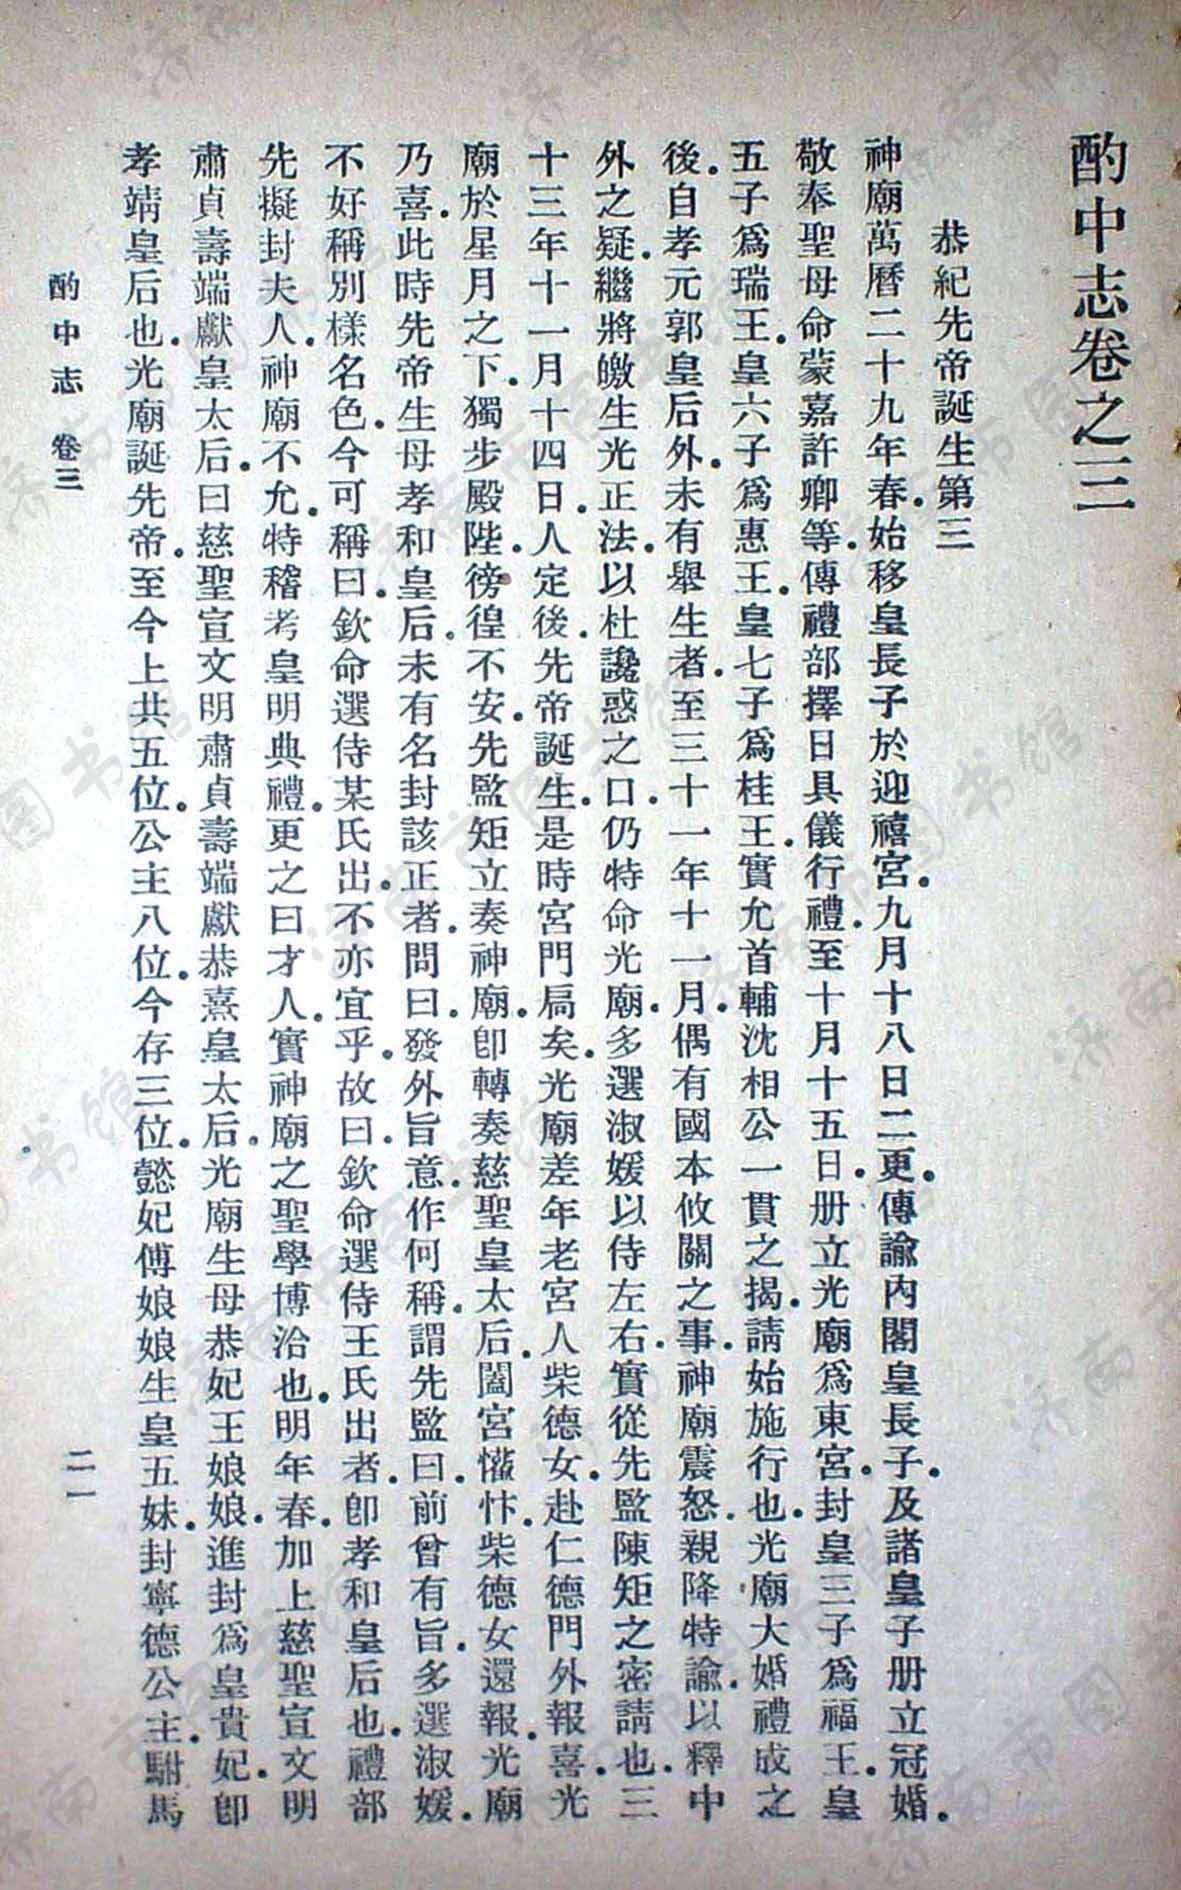 酌中志卷之三
恭紀先帝誕生第三
神廟萬曆二十九年春.始移皇長子於迎禧宮.九月十八日二更.傳諭內閣皇長子.及諸皇子册立冠婚.
敬奉聖母命蒙嘉許卿等.傳禮部擇日具儀行禮.至十月十五日.册立光廟爲東宮.封皇三子爲福王.皇
五子爲瑞王.皇六子爲惠王.皇七子爲桂王.實允首輔沈相公一貫之揭.請始施行也.光廟大婚禮成之
後.自孝元郭皇后外.未有舉生者.至三十一年十一月.偶有國本攸關之事.神廟震怒.親降特諭.以釋中
外之疑.繼將皦生光正法.以杜讒惑之口.仍特命光廟.多選淑媛以侍左右.實從先監陳矩之密請也.三
十三年十一月十四日.人定後.先帝誕生.是時宮門扃矣.光廟差年老宮人柴德女.赴仁德門外報喜.光
廟於星月之下.獨步殿陛.徬徨不安.先監矩立奏神廟.卽轉奏慈聖皇太后.闔宮懽忭.柴德女還報.光廟
乃喜.此時先帝生母孝和皇后.未有名封該正者.問曰.發外旨意.作何稱.謂先監曰.前曾有旨.多選淑媛.
不好稱別樣名色.今可稱曰.欽命選侍某氏出.不亦宜乎.故曰.欽命選侍王氏出者.卽孝和皇后也.禮部
先擬封夫人.神廟不允.特稽考皇明典禮.更之曰才人.實神廟之聖學博洽也.明年春.加上慈聖宣文明
肅貞壽端獻皇太后.曰慈聖宣文明肅貞壽端獻恭熹皇太后.光廟生母恭妃王娘娘.進封爲皇貴妃.卽
孝靖皇后也.光廟誕先帝.至今上共五位.公主八位.今存三位.懿妃傅娘娘生皇五妹.封寧德公主.駙馬
酌中志 卷三
二一